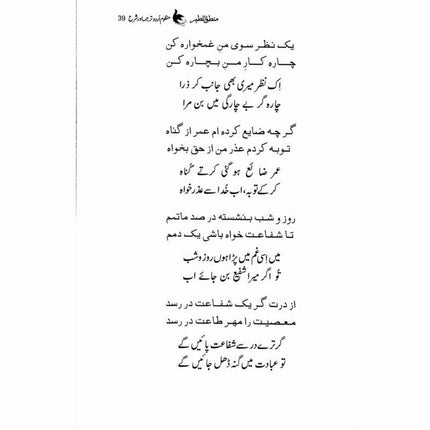 منطق الطیر منظوم اردو ترجمہ اور شرح 39
یک نظر سوی من غمخواره کن
چاره کار من بیچاره کن
اِک نظر میری بھی جانب کر ذرا
چارہ گر بے چارگی میں بن مرا
گرچه ضایع کرده ام عمر از گناه
توبه کردم عذر من از حق بخواه
عمر ضائع ہو گئی کرتے گناہ
کر کے توبہ، اب خُدا سے عذر خواہ
روز و شب بنشسته در صد ماتمم
تا شفاعت خواه باشی یک دمم
میں اِسی غم میں پڑا ہوں روز و شب
تُو اگر میرا شفیع بن جائے اب
از درت گر یک شفاعت در رسد
معصیت را مهر طاعت در رسد
گر ترے در سے شفاعت پائیں گے
تو عبادت میں گنہ ڈھل جائیں گے